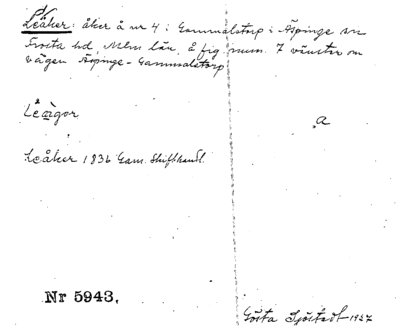 Leåker: åker å nr 4 i Gammalstorp i Äspinge sn
Frosta hd, Mlm län, å fig. num. 7 vänster om
vägen Äspinge-Gammalstorp
a
Leåker 1836 Gam. Skifthandl.
Nr 5943,
Gösta Sjöstedt 1927